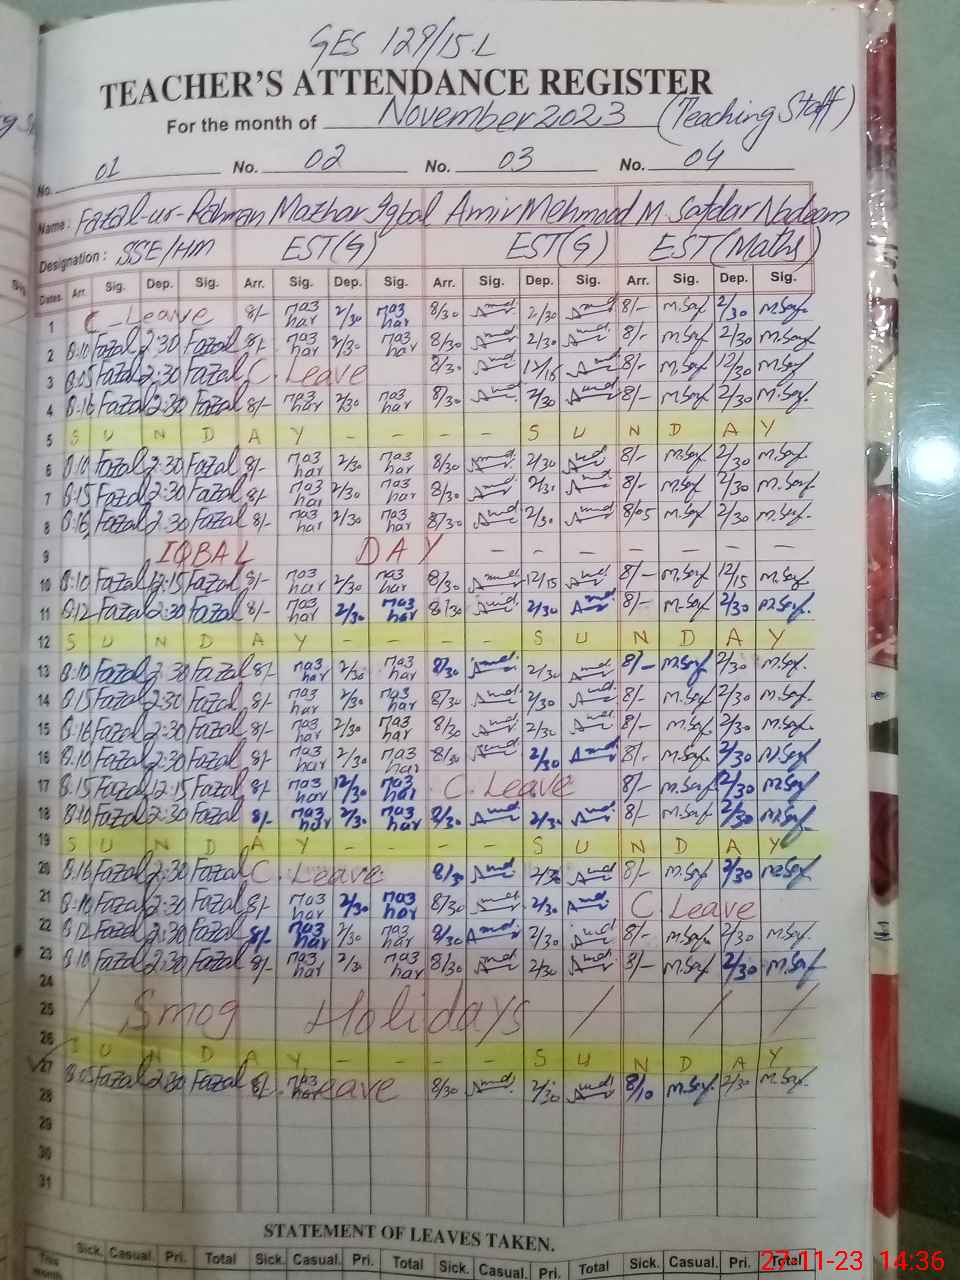 GES 129/15.L
TEACHER'S ATTENDANCE REGISTER
For the month of November 2023 (Teaching Staff)
No. 01 No. 02 No. 03 No. 04
Name: Fazal-ur-Rahman Mazhar Iqbal Amir Mehmood M. Safdar Nadeem
Designation: SSE/HM EST(G) EST(G) EST(Maths)
Dates. Arr. Sig. Dep. Sig. Arr. Sig. Dep. Sig. Arr. Sig. Dep. Sig. Arr. Sig. Dep. Sig.
1 C. Leave 8/- maz har 2/30 maz har 8/30 2/30 8/- M.Saf 2/30 M.Saf
2 8:10 Fazal 2:30 Fazal 8/- maz har 2/30 maz har 8/30 2/30 8/- M.Saf 2/30 M.Saf
3 8:05 Fazal 2:30 Fazal C. Leave 8/30 12/15 8/- M.Saf 12/30 M.Saf
4 8:16 Fazal 2:30 Fazal 8/- maz har 2/30 maz har 8/30 2/30 8/- M.Saf 2/30 M.Saf
5 S U N D A Y - - - - S U N D A Y
6 8:10 Fazal 2:30 Fazal 8/- maz har 2/30 maz har 8/30 2/30 8/- M.Saf 2/30 M.Saf
7 8:15 Fazal 2:30 Fazal 8/- maz har 2/30 maz har 8/30 2/30 8/- M.Saf 2/30 M.Saf
8 8:16 Fazal 2:30 Fazal 8/- maz har 2/30 maz har 8/30 2/30 8/05 M.Saf 2/30 M.Saf
9 IQBAL DAY - - - - - - -
10 8:10 Fazal 12:15 Fazal 8/- maz har 2/30 maz har 8/30 12/15 8/- M.Saf 12/15 M.Saf
11 8:12 Fazal 2:30 Fazal 8/- maz har 2/30 maz har 8/30 2/30 8/- M.Saf 2/30 M.Saf
12 S U N D A Y - - - - S U N D A Y
13 8:10 Fazal 2:30 Fazal 8/- maz har 2/30 maz har 8/30 2/30 8/- M.Saf 2/30 M.Saf
14 8:15 Fazal 2:30 Fazal 8/- maz har 2/30 maz har 8/30 2/30 8/- M.Saf 2/30 M.Saf
15 8:16 Fazal 2:30 Fazal 8/- maz har 2/30 maz har 8/30 2/30 8/- M.Saf 2/30 M.Saf
16 8:10 Fazal 2:30 Fazal 8/- maz har 2/30 maz har 8/30 2/30 8/- M.Saf 2/30 M.Saf
17 8:15 Fazal 12:15 Fazal 8/- maz har 12/30 maz har C. Leave 8/- M.Saf 2/30 M.Saf
18 8:10 Fazal 2:30 Fazal 8/- maz har 2/30 maz har 8/30 2/30 8/- M.Saf 2/30 M.Saf
19 S U N D A Y - - - - S U N D A Y
20 8:16 Fazal 2:30 Fazal C. Leave 8/30 2/30 8/- M.Saf 2/30 M.Saf
21 8:10 Fazal 2:30 Fazal 8/- maz har 2/30 maz har 8/30 2/30 C. Leave
22 8:12 Fazal 2:30 Fazal 8/- maz har 2/30 maz har 8/30 2/30 8/- M.Saf 2/30 M.Saf
23 8:10 Fazal 2:30 Fazal 8/- maz har 2/30 maz har 8/30 2/30 8/- M.Saf 2/30 M.Saf
24
25 / Smog Holidays / / / /
26 S U N D A Y - - - - S U N D A Y
27 8:05 Fazal 2:30 Fazal 8/- maz har Leave 8/30 2/30 8/10 M.Saf 2/30 M.Saf
28
29
30
31
STATEMENT OF LEAVES TAKEN.
Sick. Casual. Pri. Total Sick. Casual. Pri. Total Sick. Casual. Pri. Total Sick. Casual. Pri. Total
This Month
27-11-23 14:36